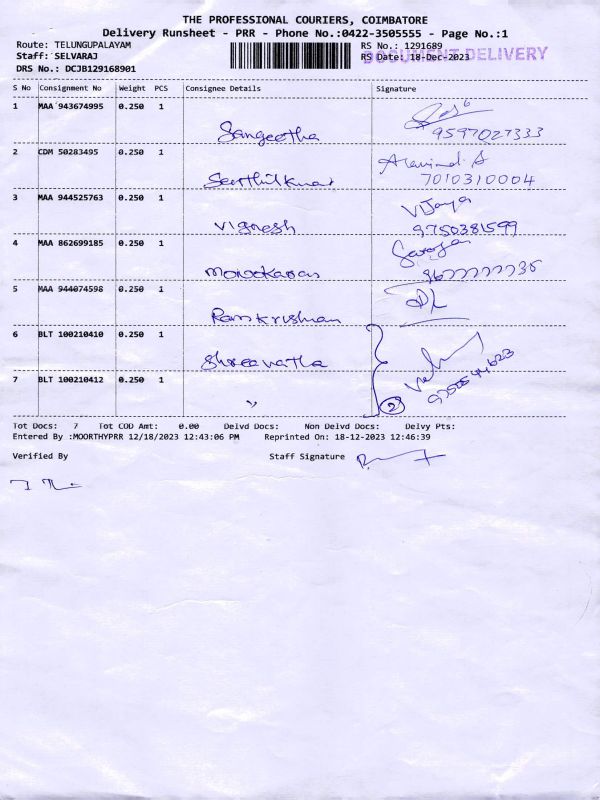 THE PROFESSIONAL COURIERS, COIMBATORE
Delivery Runsheet - PRR - Phone No.:0422-3505555 - Page No.:1
Route: TELUNGUPALAYAM RS No.: 1291689
Staff: SELVARAJ RS Date: 18-Dec-2023 DOCUMENT DELIVERY
DRS No.: DCJB129168901
S No Consignment No Weight PCS Consignee Details Signature
1 MAA 943674995 0.250 1
Sangeetha 9597027333
2 CDM 50283495 0.250 1 Aravind A
Senthilkumar 7010310004
3 MAA 944525763 0.250 1 Vijaya
Vignesh 9750381599
4 MAA 862699185 0.250 1 Saroja
Manokaran
5 MAA 944074598 0.250 1
Ramkrishnan
6 BLT 100210410 0.250 1
Shreevatha
7 BLT 100210412 0.250 1
" 2
Tot Docs: 7 Tot COD Amt: 0.00 Delvd Docs: Non Delvd Docs: Delvy Pts:
Entered By :MOORTHYPRR 12/18/2023 12:43:06 PM Reprinted On: 18-12-2023 12:46:39
Verified By Staff Signature